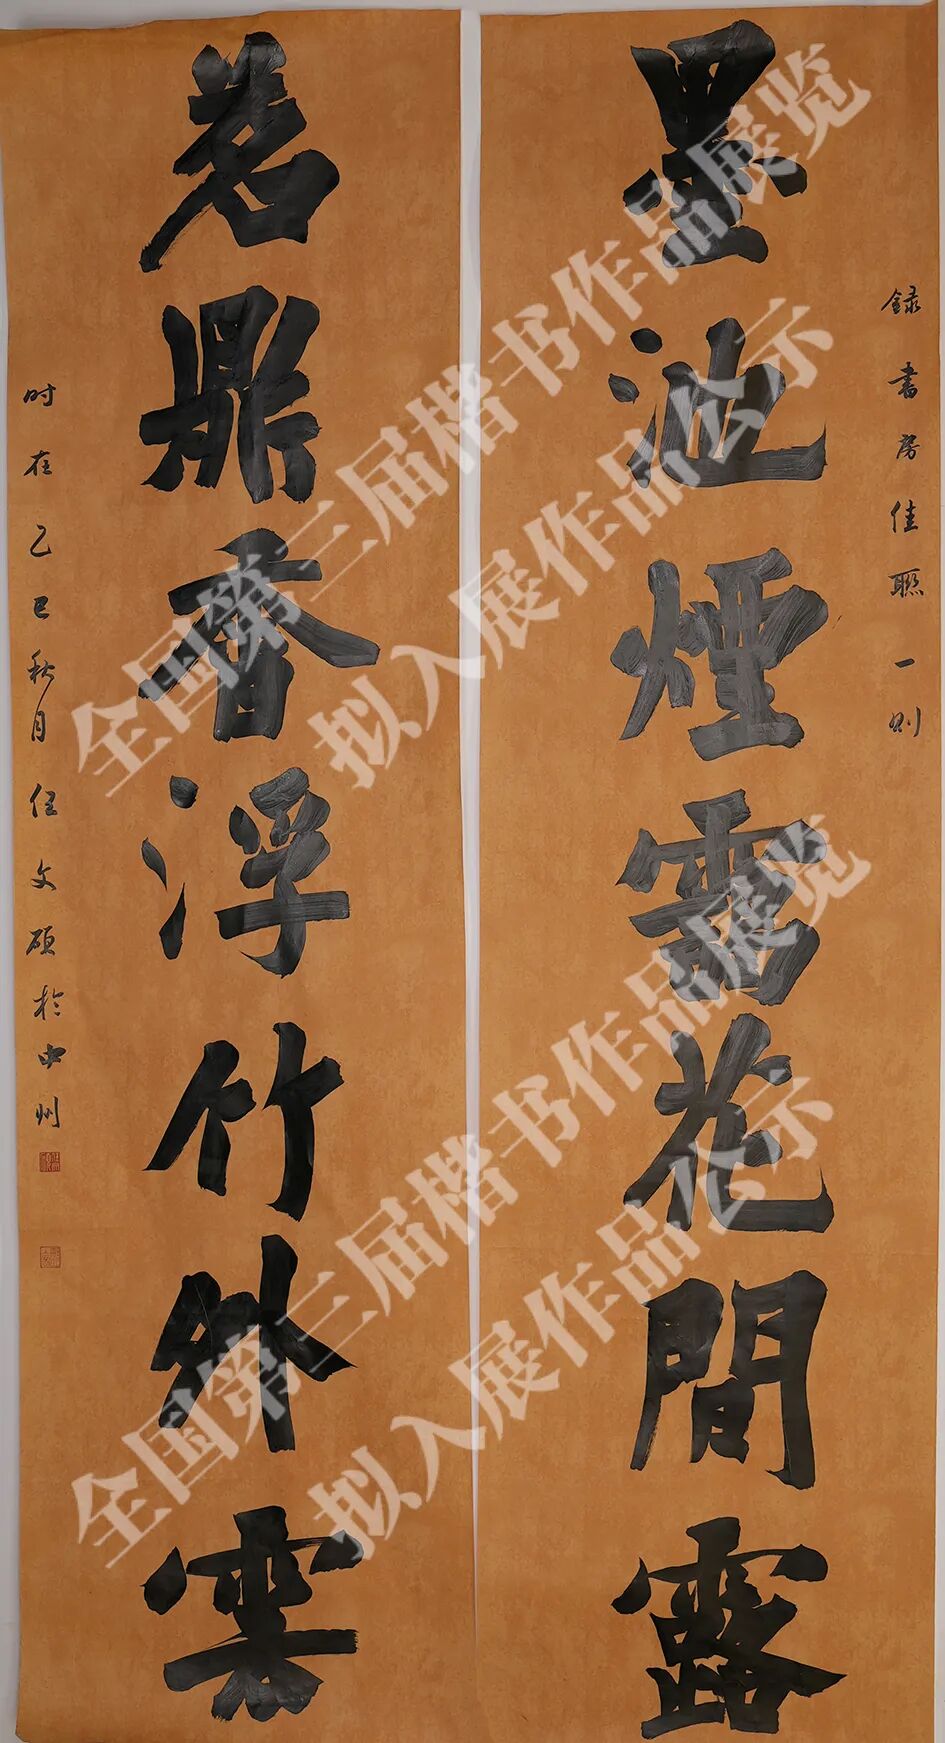 錄書房佳聯一則
墨池煙靄花間露
茗鼎香浮竹外雲
时在乙巳秋月任文碩於中州
全国第三届楷书作品展览
拟入展作品公示
全国第三届楷书作品展览
拟入展作品公示